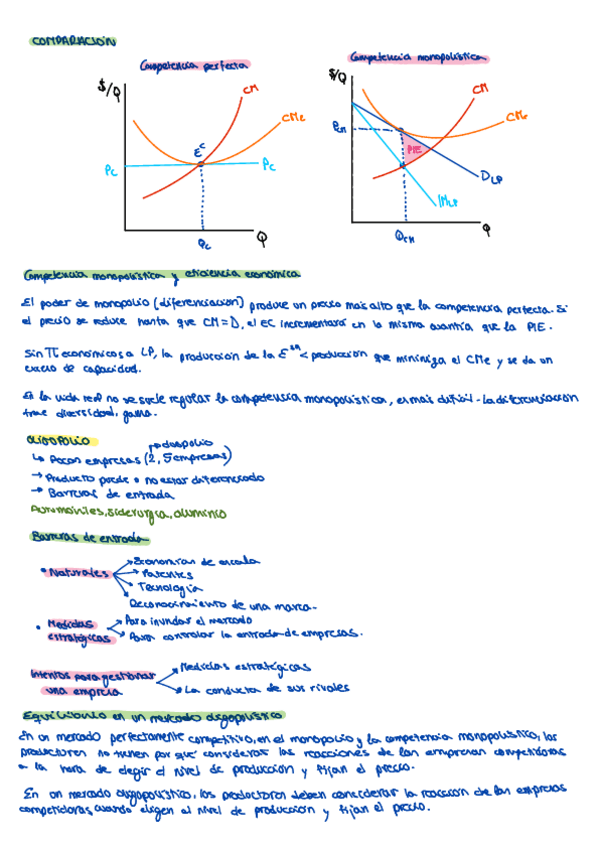 COMPARACIÓN
Competencia perfecta
Competencia monopolística
$/Q
CM
CMe
E^C
PC
PC
QC
Q
$/Q
CM
CMe
PCM
PIE
DLP
IMLP
QCM
Q
Competencia monopolística y eficiencia económica
El poder de monopolio (diferenciación) produce un precio más alto que la competencia perfecta. Si
el precio se reduce hasta que CM=D, el EC incrementará en la misma cuantía que la PIE.
Sin π económicos a LP, la producción de la E < producción que minimiza el CMe y se da un
exceso de capacidad.
En la vida real no se suele regular la competencia monopolística, es más difícil - La diferenciación
trae diversidad, gama.
OLIGOPOLIO
↳ Pocas empresas (2, 5 empresas)
→ duopolio
→ Producto puede o no estar diferenciado
→ Barreras de entrada
Automóviles, siderurgia, aluminio
Barreras de entrada
• Naturales
Economías de escala
Patentes
Tecnología
Reconocimiento de una marca.
• Medidas
estratégicas
Para inundar el mercado
Para controlar la entrada de empresas.
Intentos para gestionar
una empresa
Medidas estratégicas
La conducta de sus rivales
Equilibrio en un mercado oligopolístico
En un mercado perfectamente competitivo, en el monopolio y la competencia monopolística, los
productores no tienen por qué considerar las reacciones de las empresas competidoras
a la hora de elegir el nivel de producción y fijan el precio.
En un mercado oligopolístico, los productores deben considerar la reacción de las empresas
competidoras, cuando eligen el nivel de producción y fijan el precio.